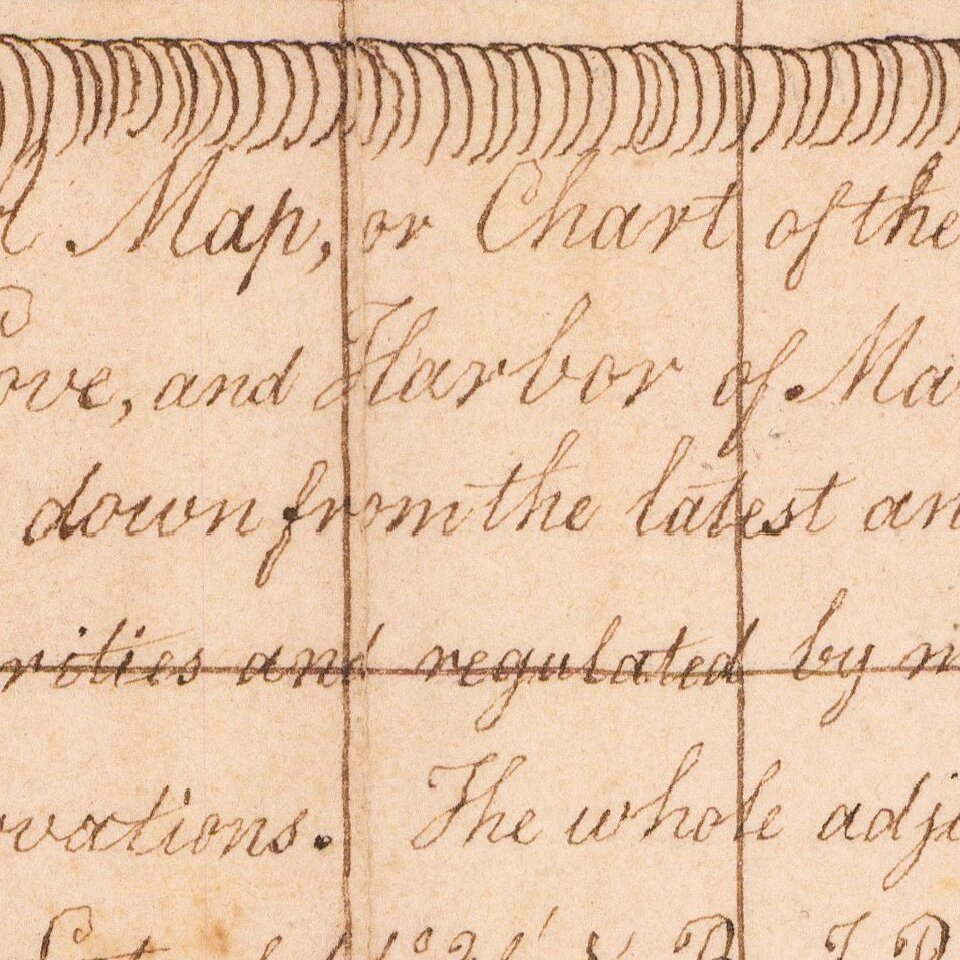 Map, or Chart of the
ove, and Harbor of Ma
down from the latest an
rities and regulated by
vations. The whole adj